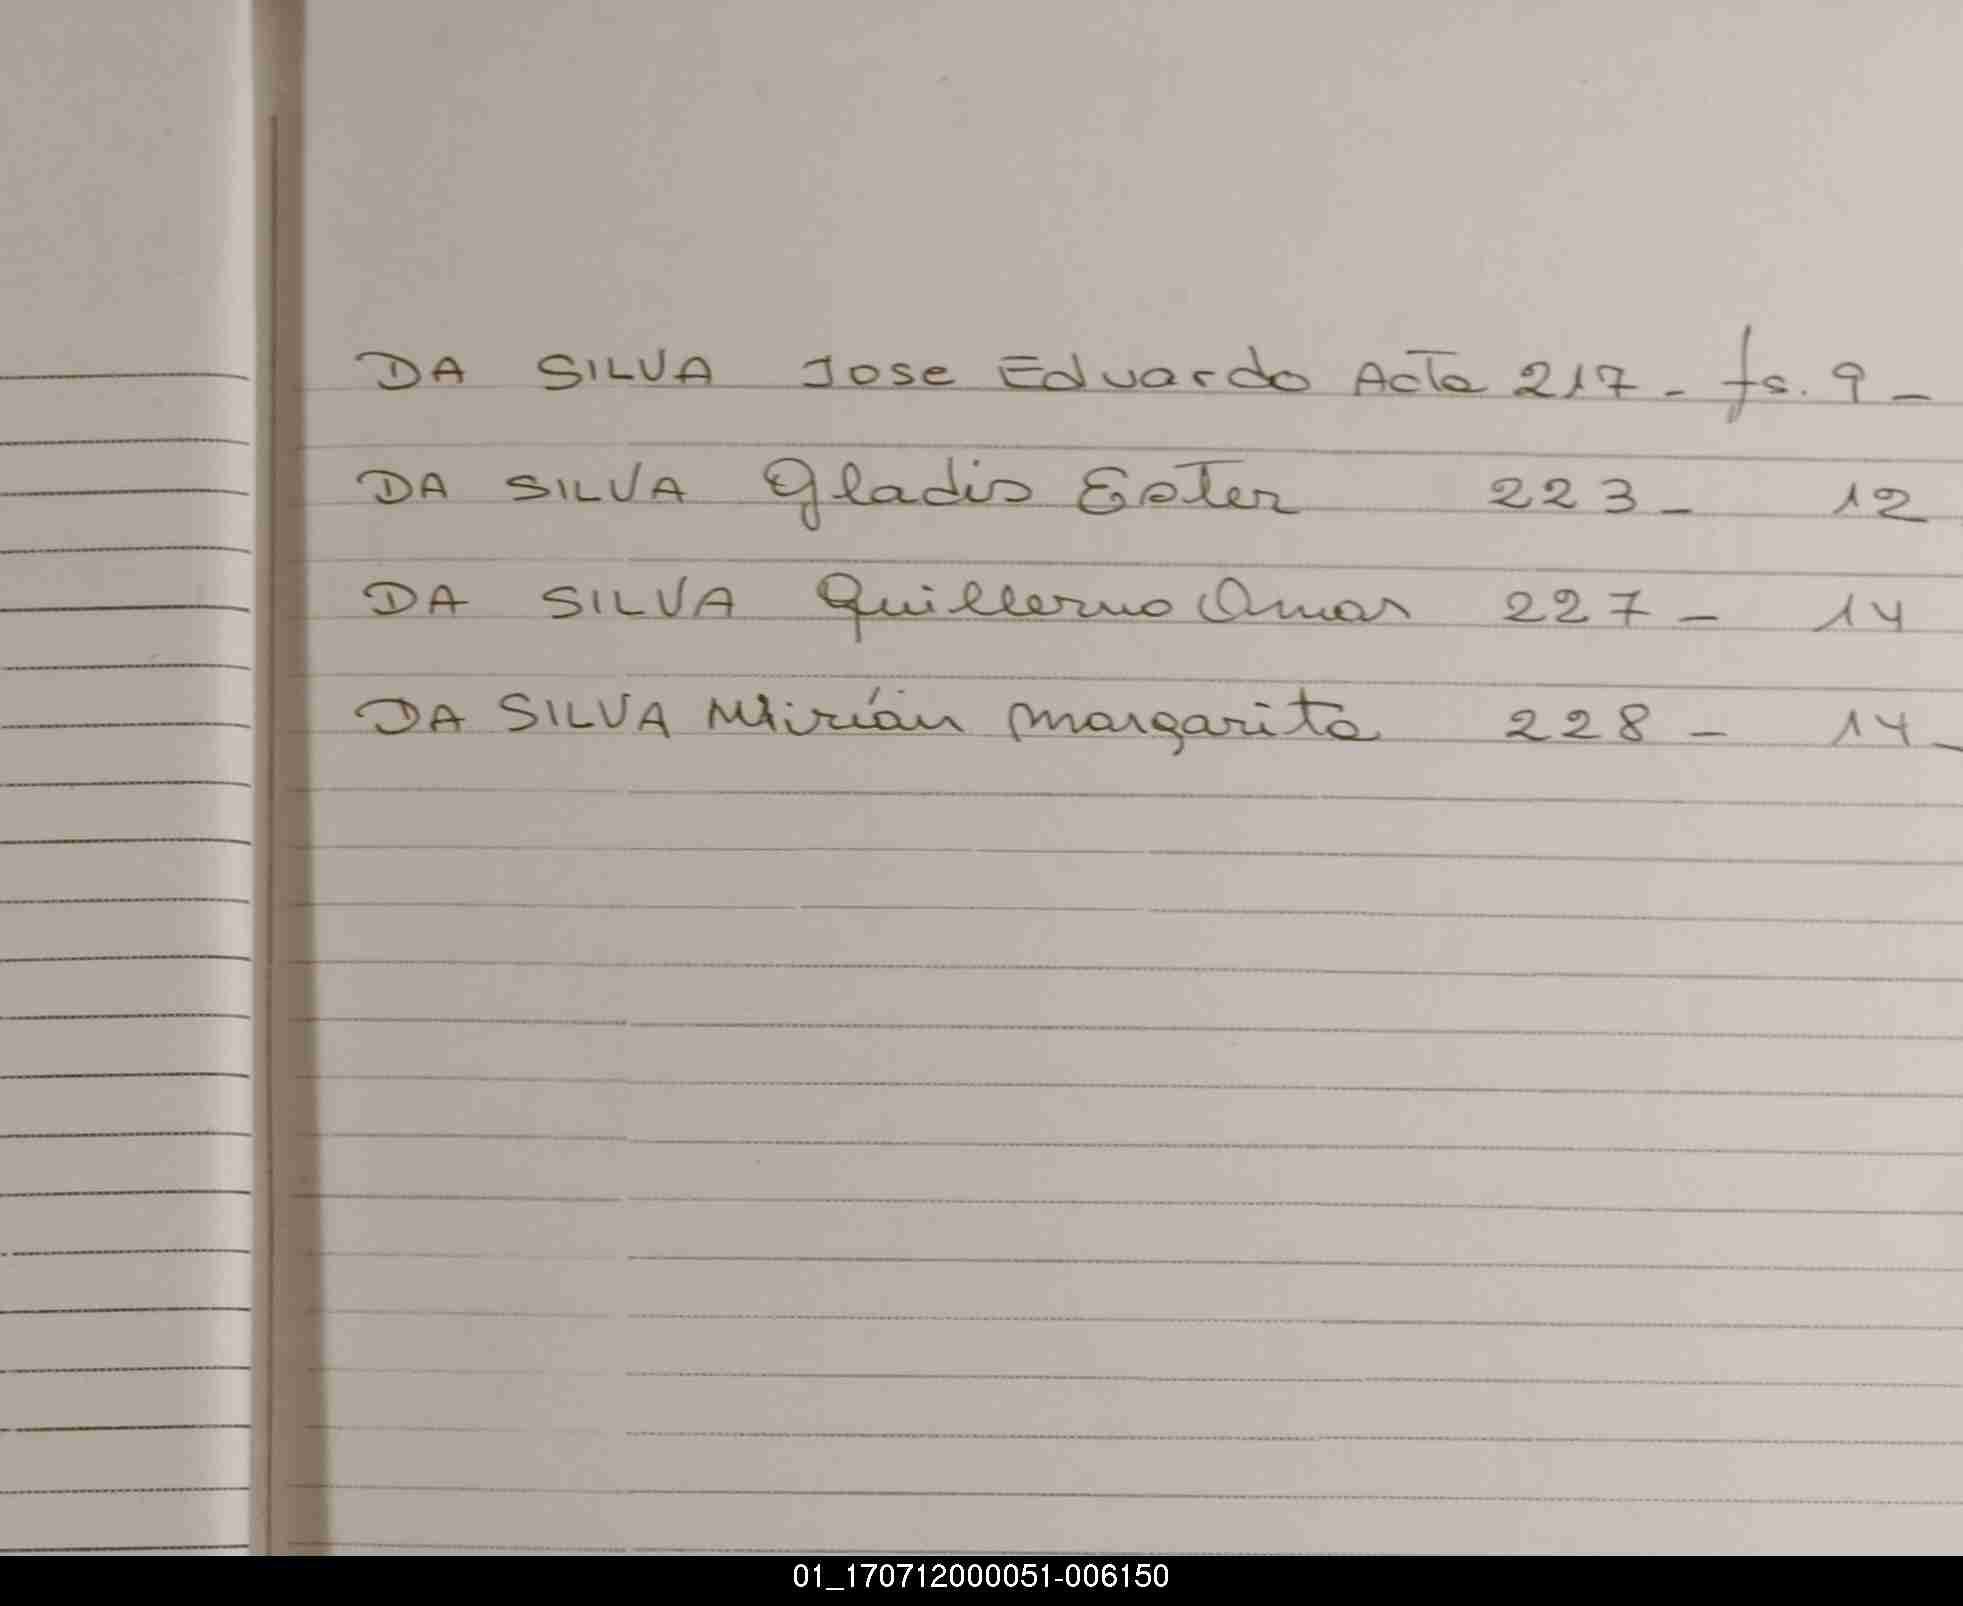 DA SILVA Jose Eduardo Acta 217 - fs. 9 -
DA SILVA Gladis Ester 223 - 12
DA SILVA Guillermo Omar 227 - 14
DA SILVA Mirián Margarita 228 - 14 -
01_170712000051-006150